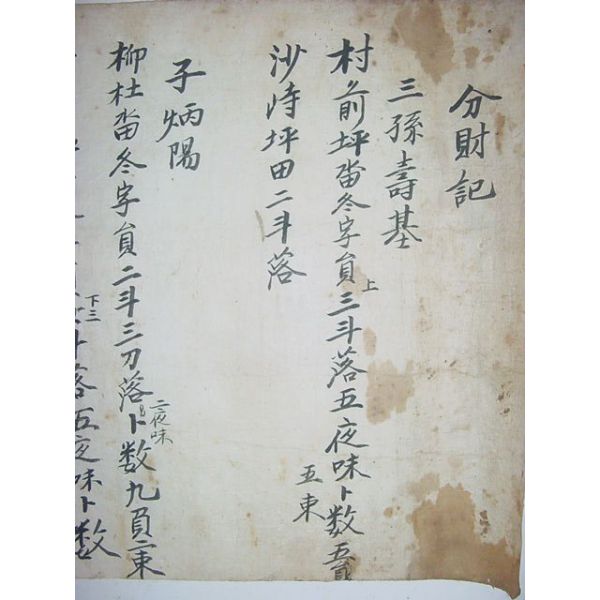 分財記
三孫壽基
村前坪畓冬字員上三斗落五夜味卜数五負
五束
沙峙坪田二斗落
子炳陽
柳杜畓冬字員二斗三刀落二夜味卜数九負二束
下三
斗落五夜味卜数